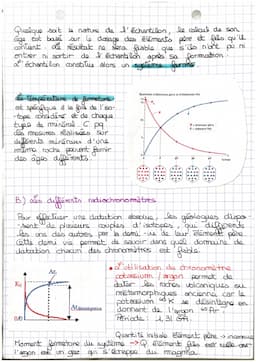 Quelque soit la nature de l'échantillon, le calcul de son
âge est basé sur le dosage des éléments père et fils qu'il
contient. Le résultat ne sera fiable que s'ils n'ont pu ni
entrer ni sortir de l'échantillon après sa formation :
l'échantillon constitue alors un système fermé.
La température de fermeture
est spécifique à la fois de l'iso-
tope considéré et de chaque
type de minéral. C pq
des mesures réalisées sur
différents minéraux d'une
même roche peuvent fournir
des âges différents.
B) Les différents radiochronomètres
Pour effectuer une datation absolue, les géologues dispo-
sent de plusieurs couples d'isotopes, qui diffèrents
les uns des autres par la demi-vie de leur élément père.
Cette demi vie permet de savoir dans quel domaine de
datation chacun des chronomètres est fiable.
• L'utilisation du chronomètre
potassium/argon permet de
dater les roches volcaniques ou
métamorphiques anciennes car le
potassium ⁴⁰K se désintègre en
donnant de l'argon ⁴⁰Ar
Période : 1,31 Ga
Quantité initiale élément père →
Moment fermeture du système → Q élément fils est nulle car
l'argon est un gaz qui s'échappe du magma